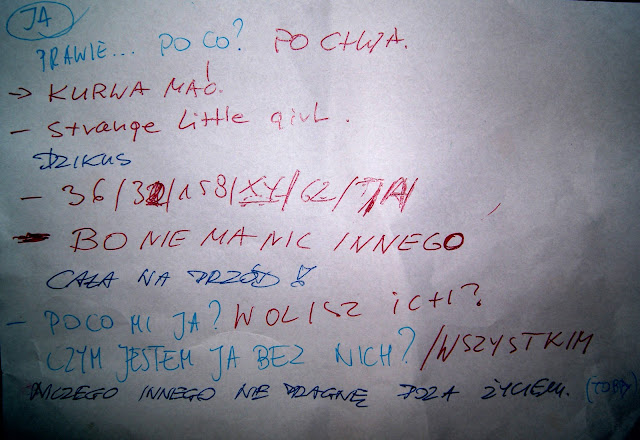 JA
PRAWIE... PO CO? POCHWA.
→ KURWA MAĆ!
- strange little girl.
DZIKUS
- 36/32/158/XY/62/TJA/
- BO NIE MA NIC INNEGO
CAŁA NA PRZÓD!
- PO CO MI JA? WOLISZ ICH?
CZYM JESTEM JA BEZ NICH? /WSZYSTKIM
NICZEGO INNEGO NIE PRAGNĘ POZA ŻYCIEM.